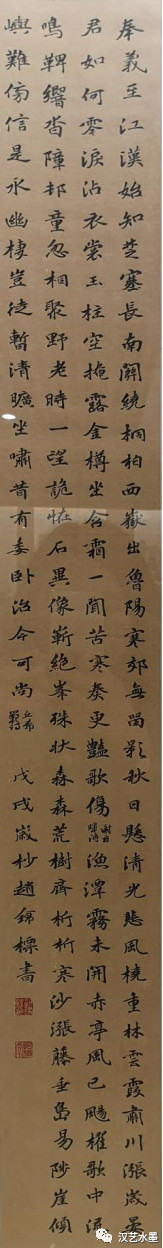 奉義至江漢始知楚塞長南關繞桐柏西嶽出魯陽寒郊無留影秋日懸清光悲風橈重林雲霞肅川漲歲晏
君如何零淚沾衣裳玉柱空掩露金樽坐含霜一聞苦寒奏更豔歌傷漁潭霧未開赤亭風已颺櫂歌中流
鳴鞞響沓障村童忽相聚野老時一望詭怪石異像嶄絕峯殊狀森森荒樹齊析析寒沙漲藤垂島易陟崖傾
嶼難傍信是永幽棲豈徒暫清曠坐嘯昔有委卧治今可尚 戊戌歲杪趙錦標書
汉艺水墨